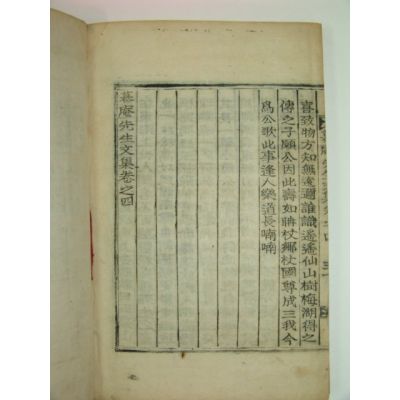 喜致物方知無遠邇誰識遙遙仙山樹梅湖得之
傳之子願公因此壽如將杖鄉杖國尊成三我今
爲公歌此事逢人樂道長喃喃
菴先生文集卷之四